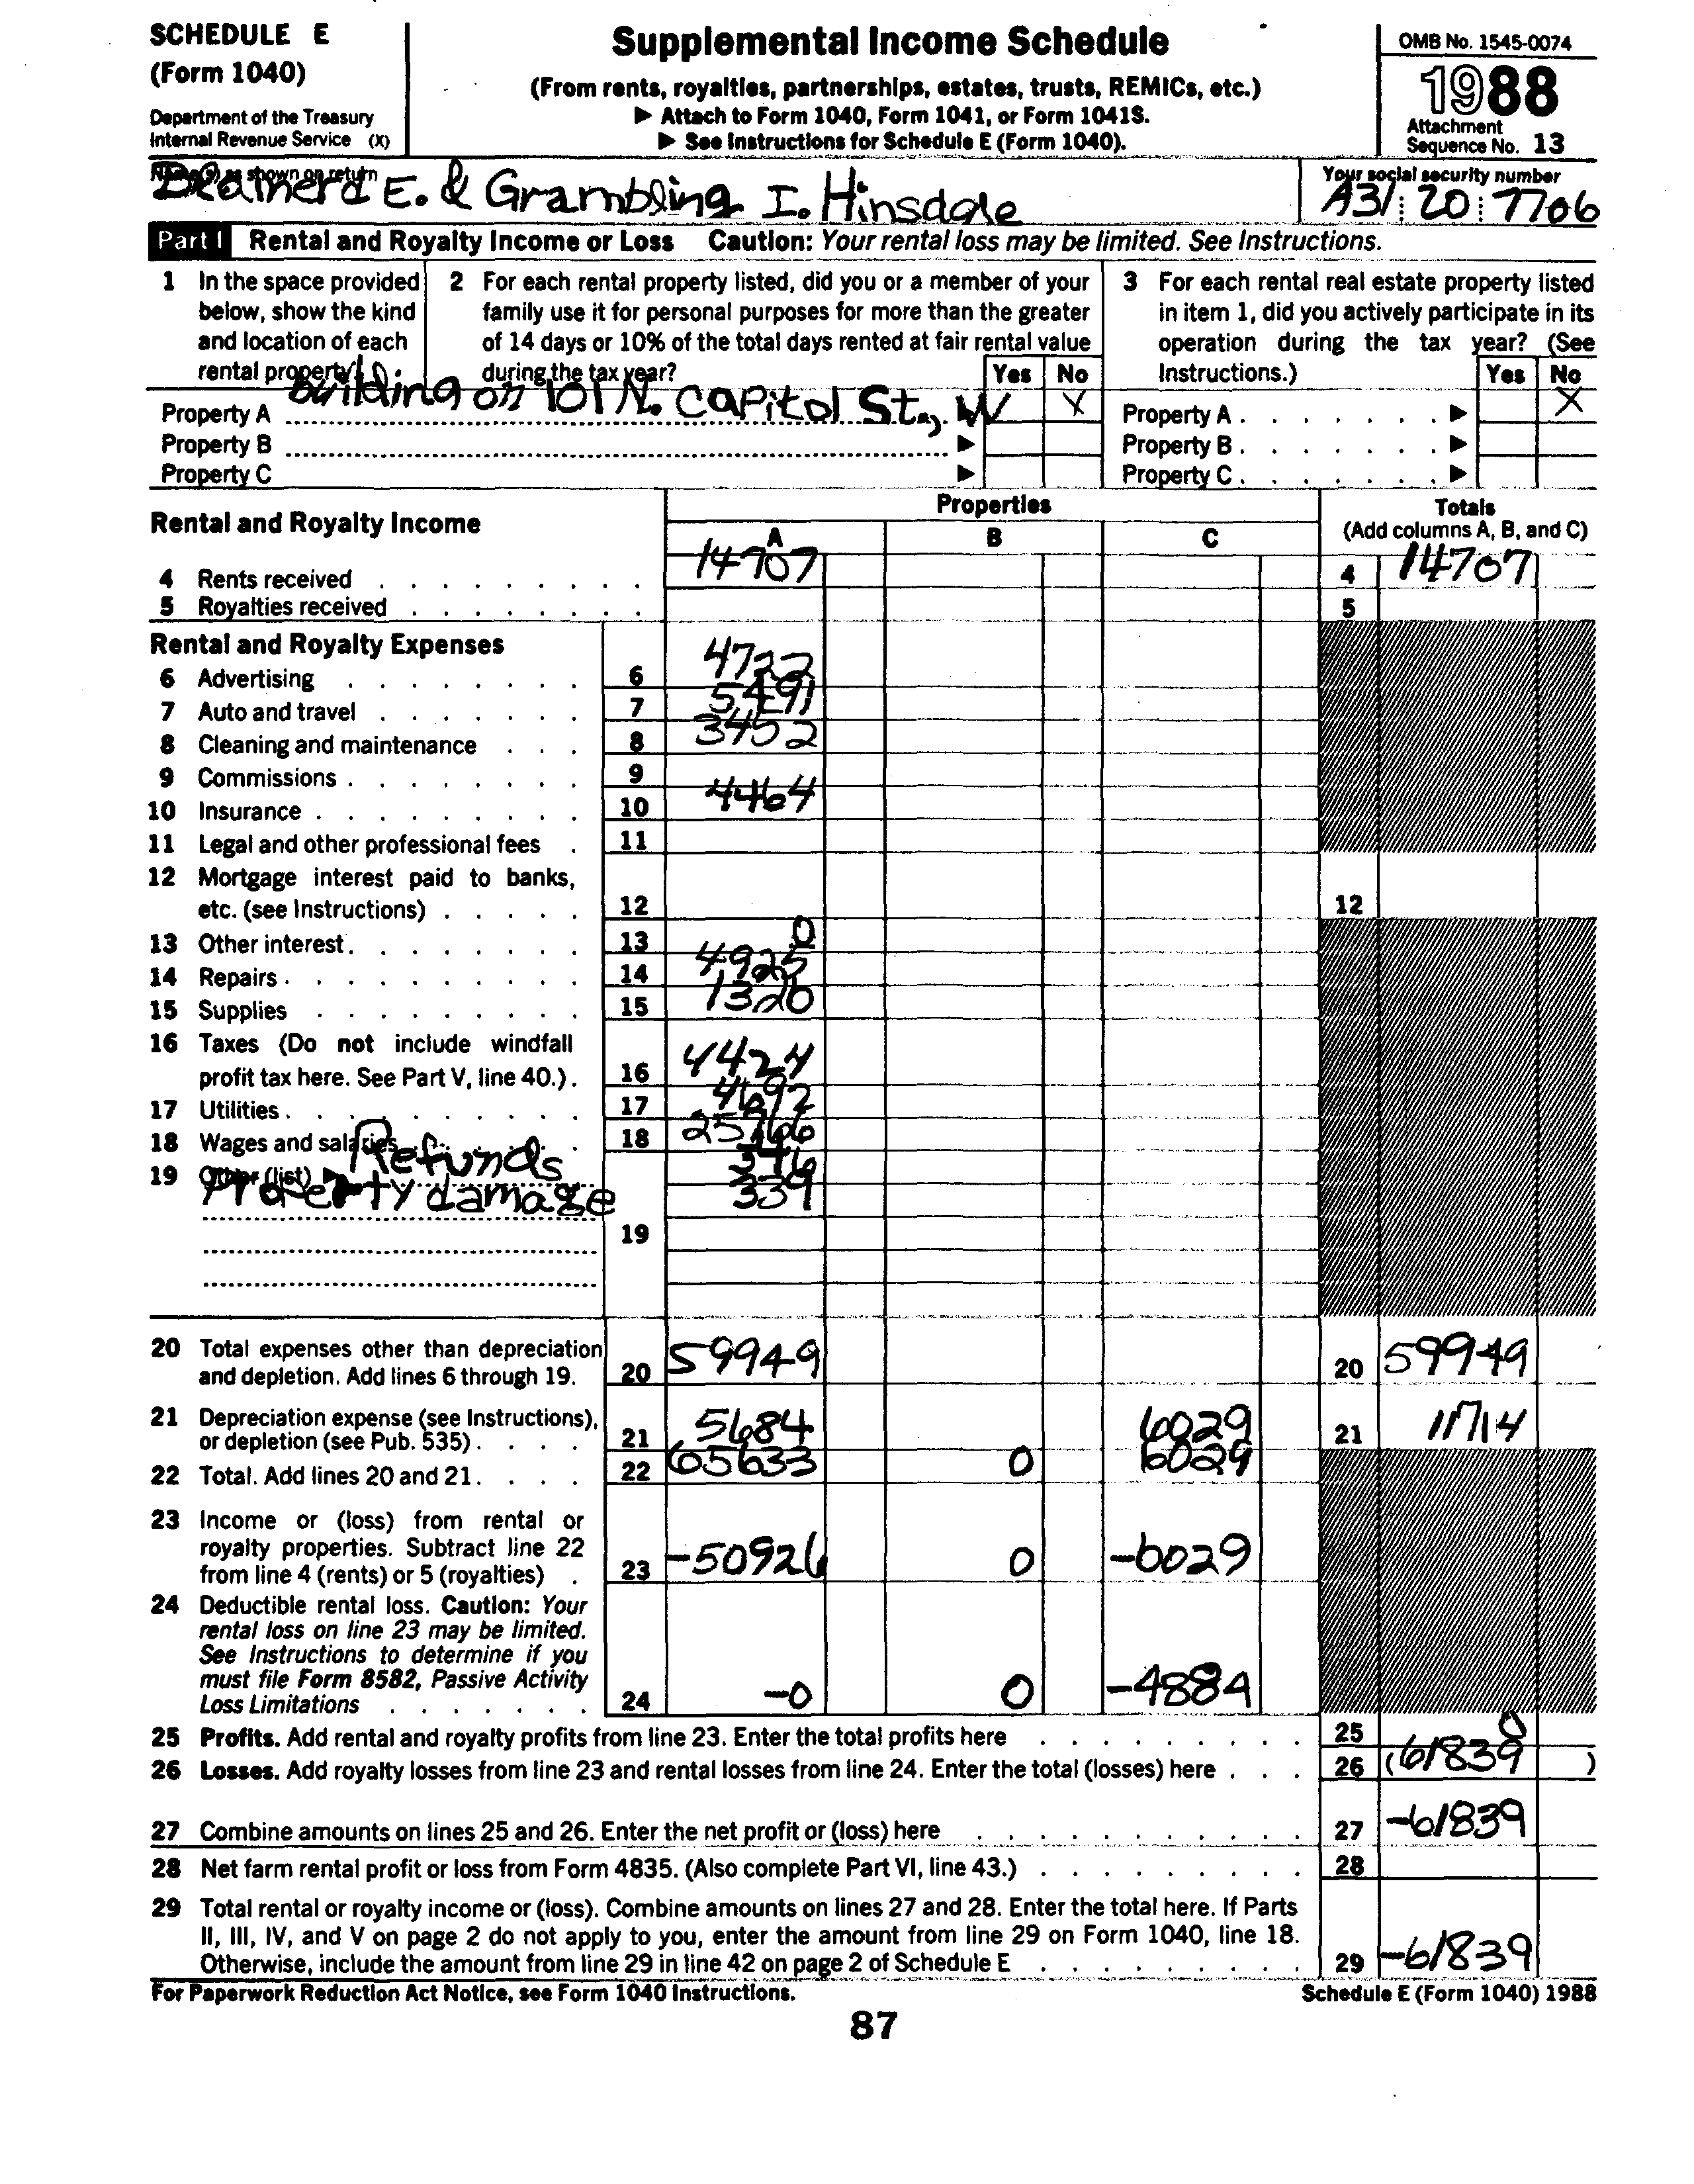 SCHEDULE E
(Form 1040)
Department of the Treasury
Internal Revenue Service (X)
Supplemental Income Schedule
(From rents, royalties, partnerships, estates, trusts, REMICs, etc.)
▶ Attach to Form 1040, Form 1041, or Form 1041S.
▶ See Instructions for Schedule E (Form 1040).
OMB No. 1545-0074
1988
Attachment
Sequence No. 13
Name(s) as shown on return
E. & Grambling I. Hinsdale
Your social security number
A31 20 7706
Part I Rental and Royalty Income or Loss Caution: Your rental loss may be limited. See Instructions.
1 In the space provided below, show the kind and location of each rental property.
2 For each rental property listed, did you or a member of your family use it for personal purposes for more than the greater of 14 days or 10% of the total days rented at fair rental value during the tax year?
Yes No
3 For each rental real estate property listed in item 1, did you actively participate in its operation during the tax year? (See Instructions.)
Yes No
Property A building on 101 N. Capitol St., W X Property A . . . . . . . ▶ X
Property B ▶ Property B . . . . . . . ▶
Property C ▶ Property C . . . . . . . ▶
Rental and Royalty Income
Properties
A B C
Totals
(Add columns A, B, and C)
4 Rents received 14707 4 14707
5 Royalties received 5
Rental and Royalty Expenses
6 Advertising 6 4722
7 Auto and travel 7 5491
8 Cleaning and maintenance 8 3452
9 Commissions 9
10 Insurance 10 4464
11 Legal and other professional fees 11
12 Mortgage interest paid to banks,
etc. (see Instructions) 12 12
13 Other interest 13 0
14 Repairs 14 4925
15 Supplies 15 1326
16 Taxes (Do not include windfall
profit tax here. See Part V, line 40.) 16 4424
17 Utilities 17 4692
18 Wages and salaries 18 25766
19 Other (list) ▶ Refunds
Property damage 339
19
20 Total expenses other than depreciation
and depletion. Add lines 6 through 19. 20 59949 20 59949
21 Depreciation expense (see Instructions),
or depletion (see Pub. 535) 21 5684 6029 21 11714
22 Total. Add lines 20 and 21 22 65633 0 6029
23 Income or (loss) from rental or
royalty properties. Subtract line 22
from line 4 (rents) or 5 (royalties) 23 -50926 0 -6029
24 Deductible rental loss. Caution: Your
rental loss on line 23 may be limited.
See Instructions to determine if you
must file Form 8582, Passive Activity
Loss Limitations 24 -0 0 -4884
25 Profits. Add rental and royalty profits from line 23. Enter the total profits here 25 0
26 Losses. Add royalty losses from line 23 and rental losses from line 24. Enter the total (losses) here 26 (61839 )
27 Combine amounts on lines 25 and 26. Enter the net profit or (loss) here 27 -61839
28 Net farm rental profit or loss from Form 4835. (Also complete Part VI, line 43.) 28
29 Total rental or royalty income or (loss). Combine amounts on lines 27 and 28. Enter the total here. If Parts
II, III, IV, and V on page 2 do not apply to you, enter the amount from line 29 on Form 1040, line 18.
Otherwise, include the amount from line 29 in line 42 on page 2 of Schedule E 29 -61839
For Paperwork Reduction Act Notice, see Form 1040 Instructions.
Schedule E (Form 1040) 1988
87